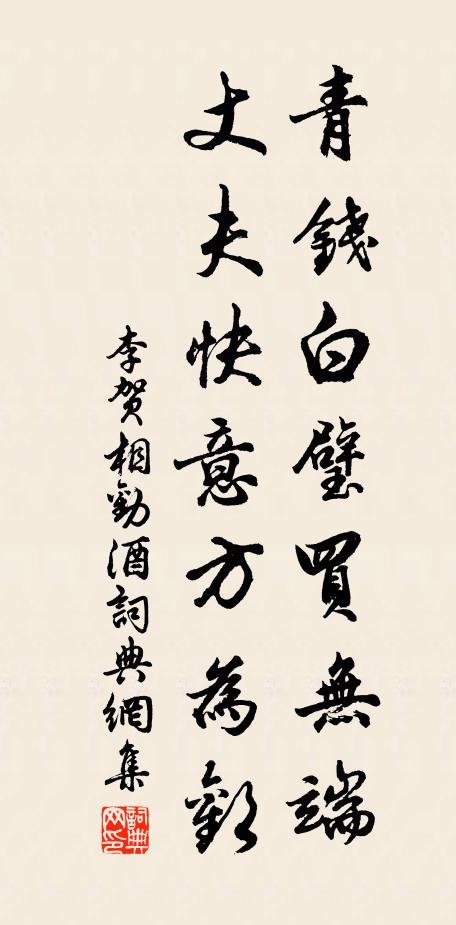 青錢白璧買無端
丈夫快意方為歡
李賀相勸酒詞典網集
詞典網印